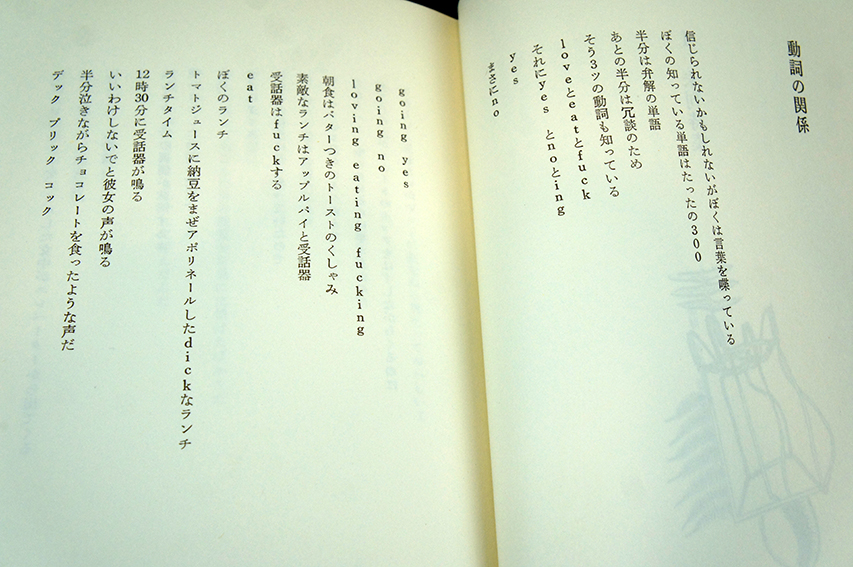 動詞の関係
信じられないかもしれないがぼくは言葉を喋っている
ぼくの知っている単語はたったの300
半分は弁解の単語
あとの半分は冗談のため
そう3ツの動詞も知っている
loveとeatとfuck
それにyes とnoとing
yes
まさにno
going yes
going no
loving eating fucking
朝食はバターつきのトーストのくしゃみ
素敵なランチはアップルパイと受話器
受話器はfuckする
eat
ぼくのランチ
トマトジュースに納豆をまぜアポリネールしたdickなランチ
ランチタイム
12時30分に受話器が鳴る
いいわけしないでと彼女の声が鳴る
半分泣きながらチョコレートを食ったような声だ
デック プリック コック